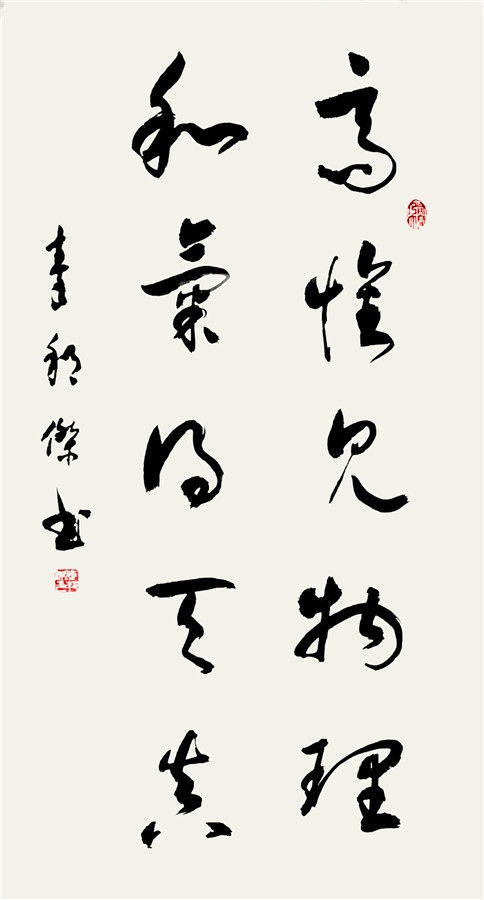 高懷見物理
和氣得天真
傑書